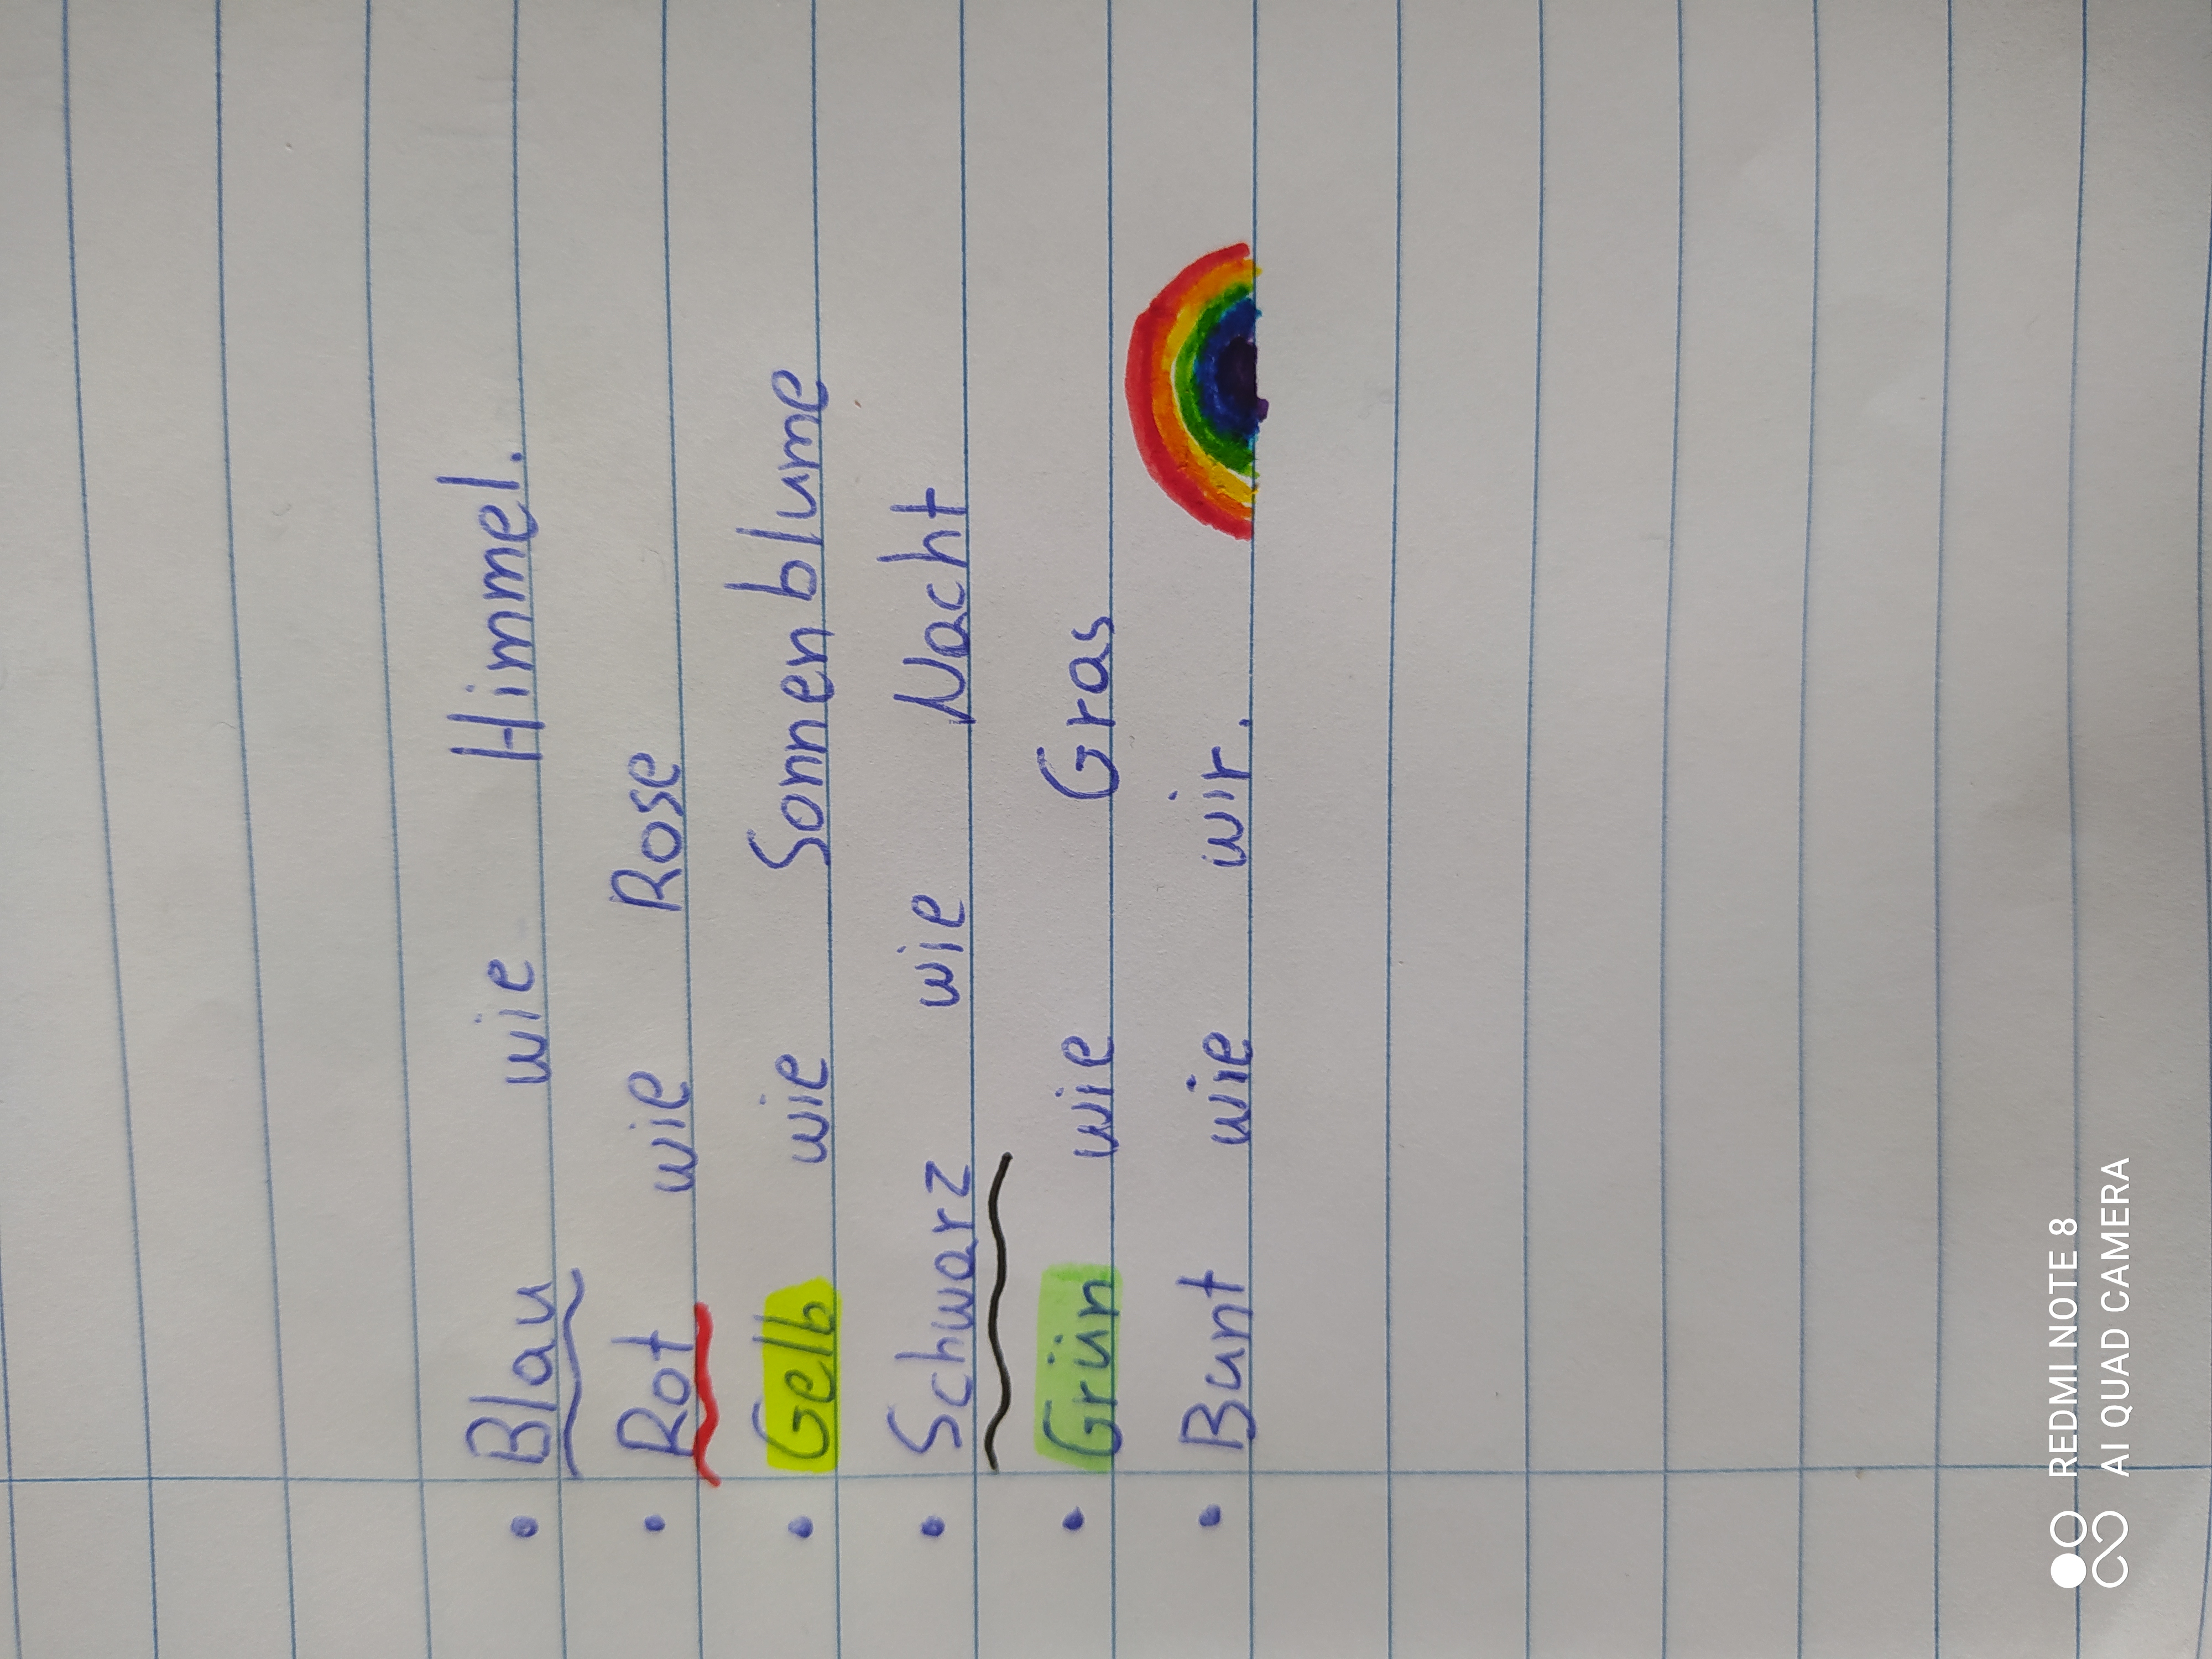 • Blau wie Himmel.
• Rot wie Rose
• Gelb wie Sonnenblume
• Schwarz wie Nacht
• Grün wie Gras
• Bunt wie wir.
REDMI NOTE 8
AI QUAD CAMERA